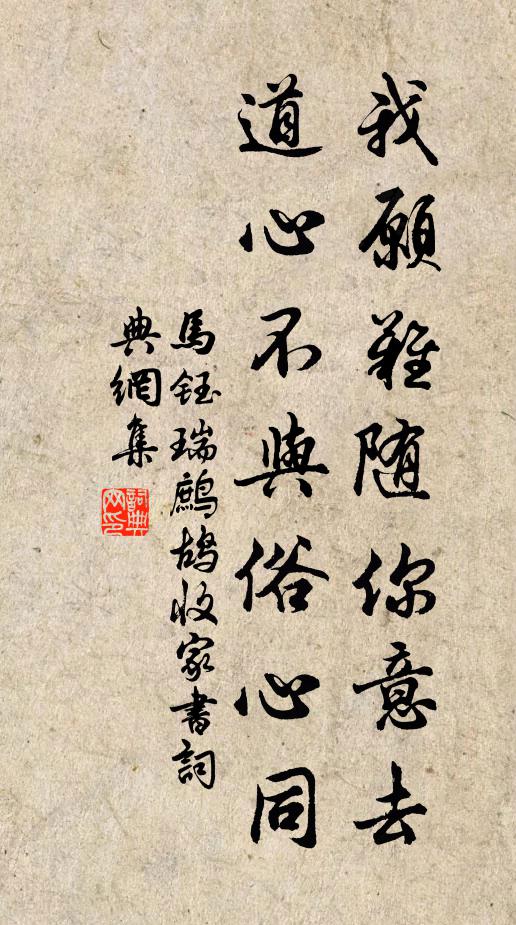 我願難随你意去
道心不與俗心同
馬鈺瑞鷓鴣收家書詞
典網集
詞典
网印